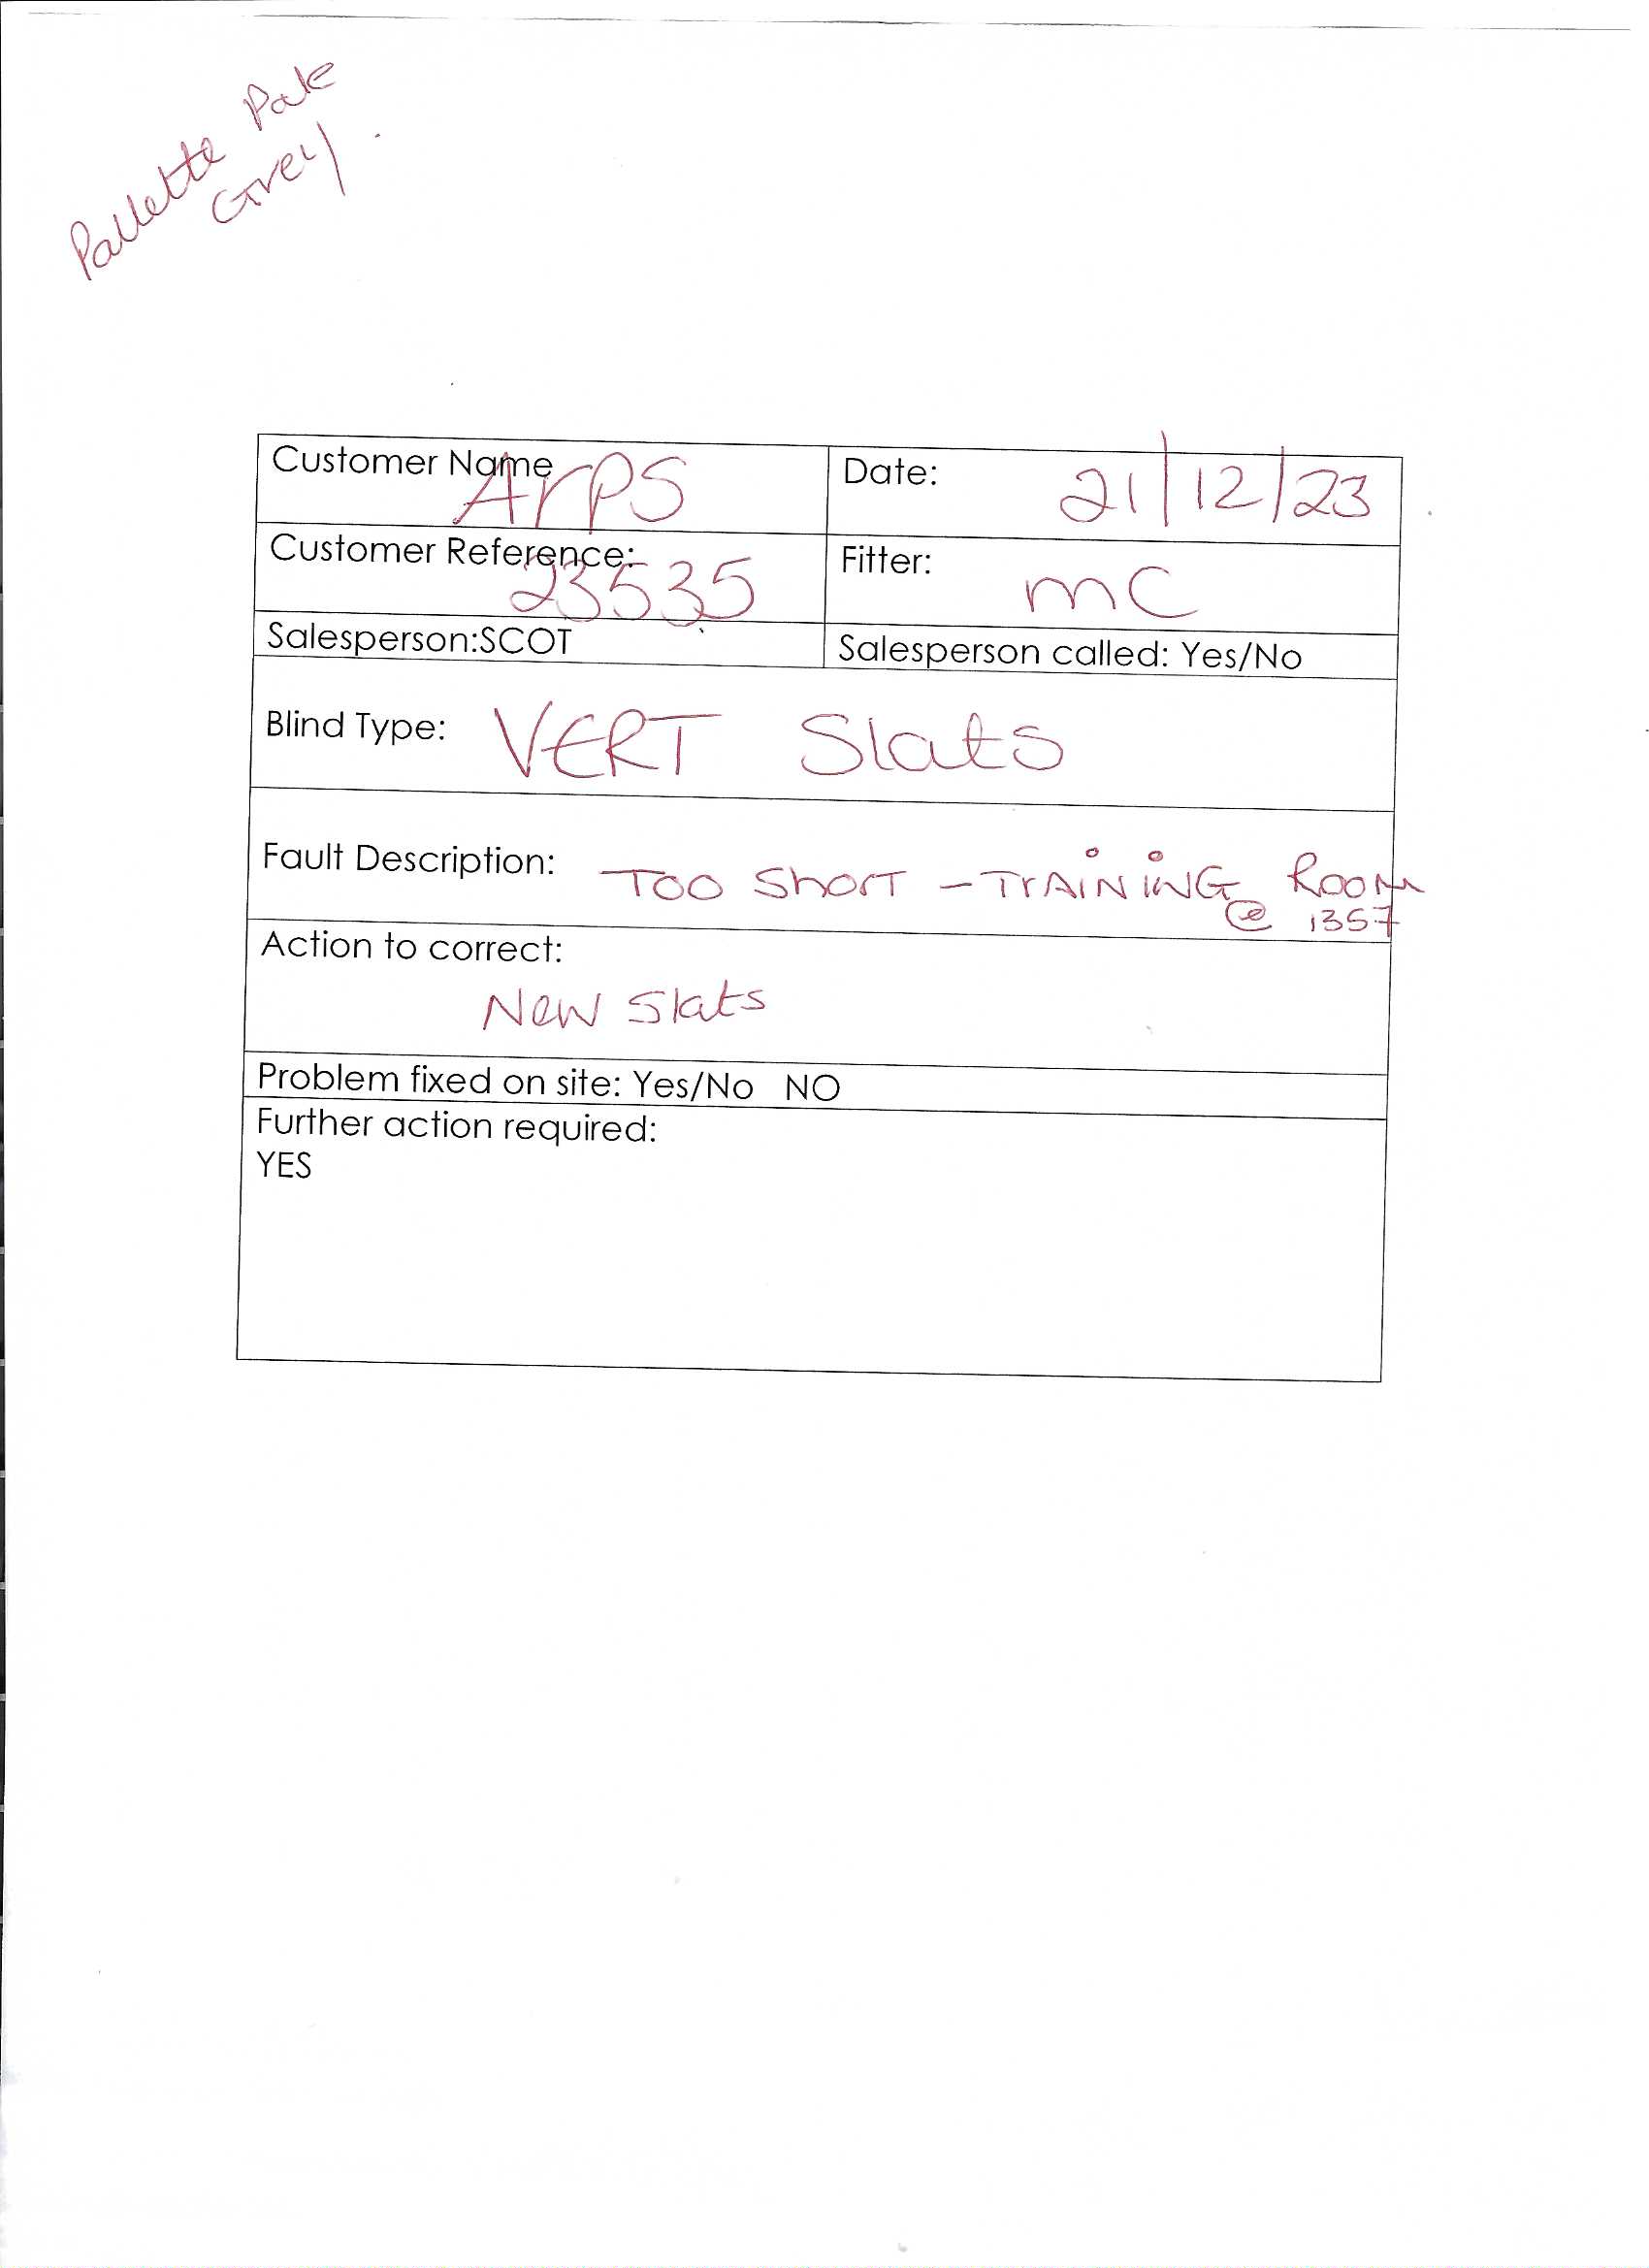 Pallette Pale
Grey.
Customer Name Arps
Date: 21/12/23
Customer Reference: 23535
Fitter: mC
Salesperson:SCOT
Salesperson called: Yes/No
Blind Type: VERT Slats
Fault Description: TOO Short - TrAiNiNG Room
@ 1357
Action to correct:
New Slats
Problem fixed on site: Yes/No NO
Further action required:
YES